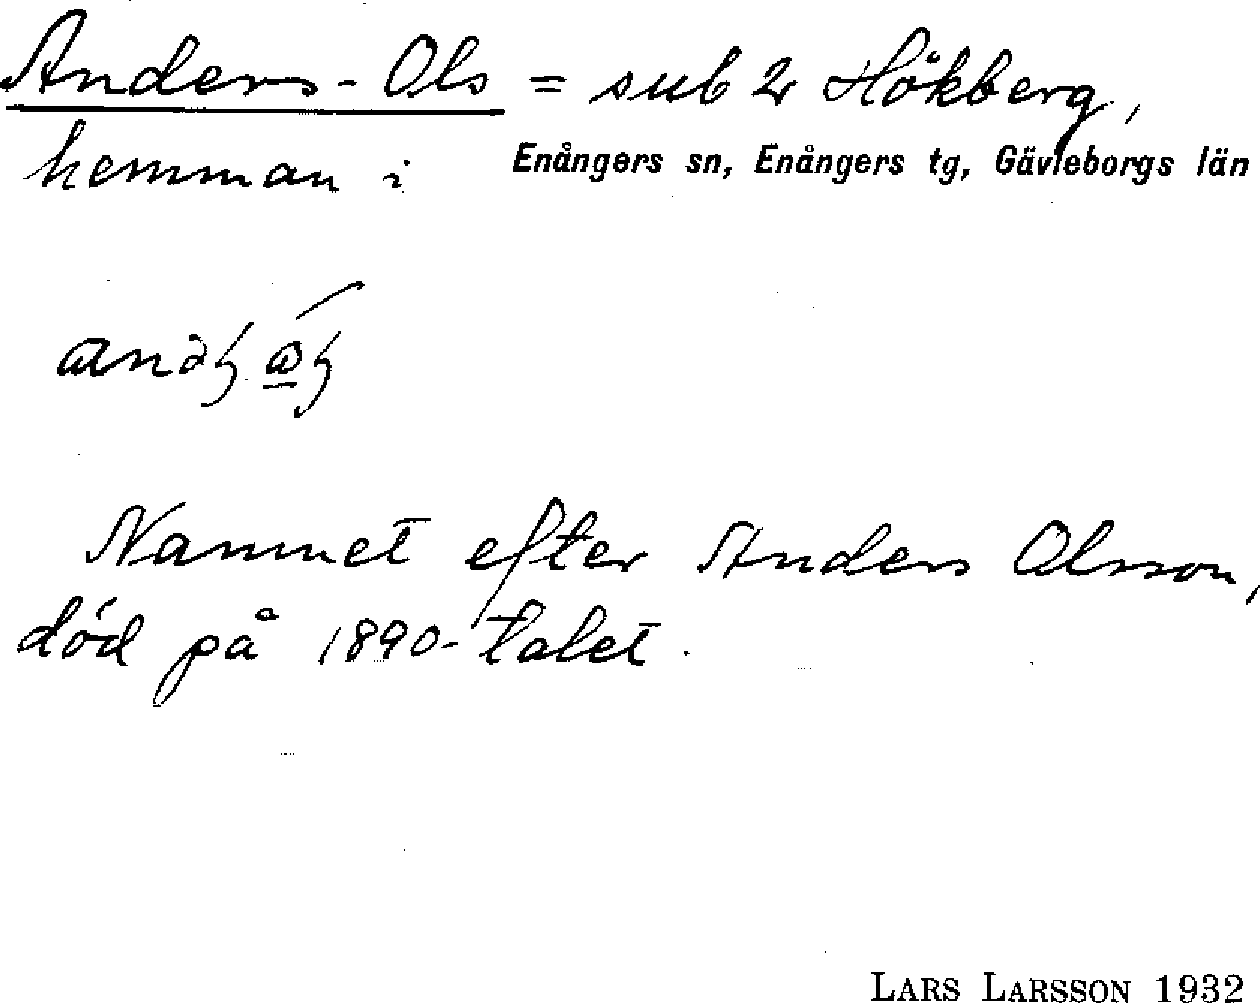 Anders-Ols = sub 2 Hökberg,
hemman i Enångers sn, Enångers tg, Gävleborgs län
Namnet efter Anders Olsson,
död på 1890-talet.
LARS LARSSON 1932